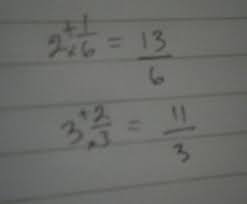 2 + 1/× 6 = 13/6
3 + 2/× 3 = 11/3